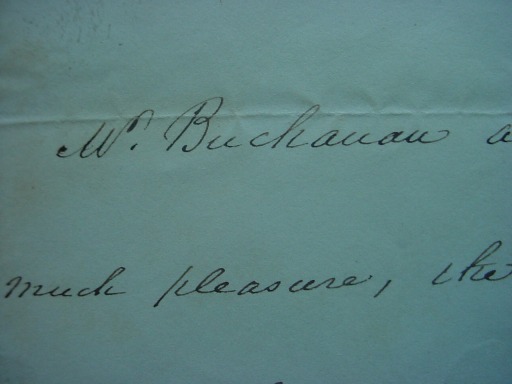 Mr. Buchanan a
much pleasure, the